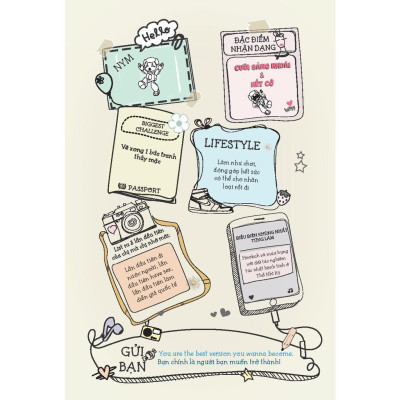 Hello
NYM
ĐẶC ĐIỂM
NHẬN DẠNG
CƯỜI SẢNG KHOÁI
&
HẾT CỠ
BIGGEST
CHALLENGE
Vẽ xong 1 bức tranh
thấy mặc
PASSPORT
LIFESTYLE
Làm như chơi,
đóng góp hết sức
có thể cho nhân
loại rồi đi
List ra 3 lần đầu tiên
của chị mà chị nhớ mãi:
Lần đầu tiên đi
nước ngoài, lần
đầu tiên have sex,
lần đầu tiên làm
diễn giả quốc tế
ĐIỀU ĐIÊN KHÙNG NHẤT
TỪNG LÀM
GỬI
BẠN
You are the best version you wanna become.
Bạn chính là người bạn muốn trở thành!